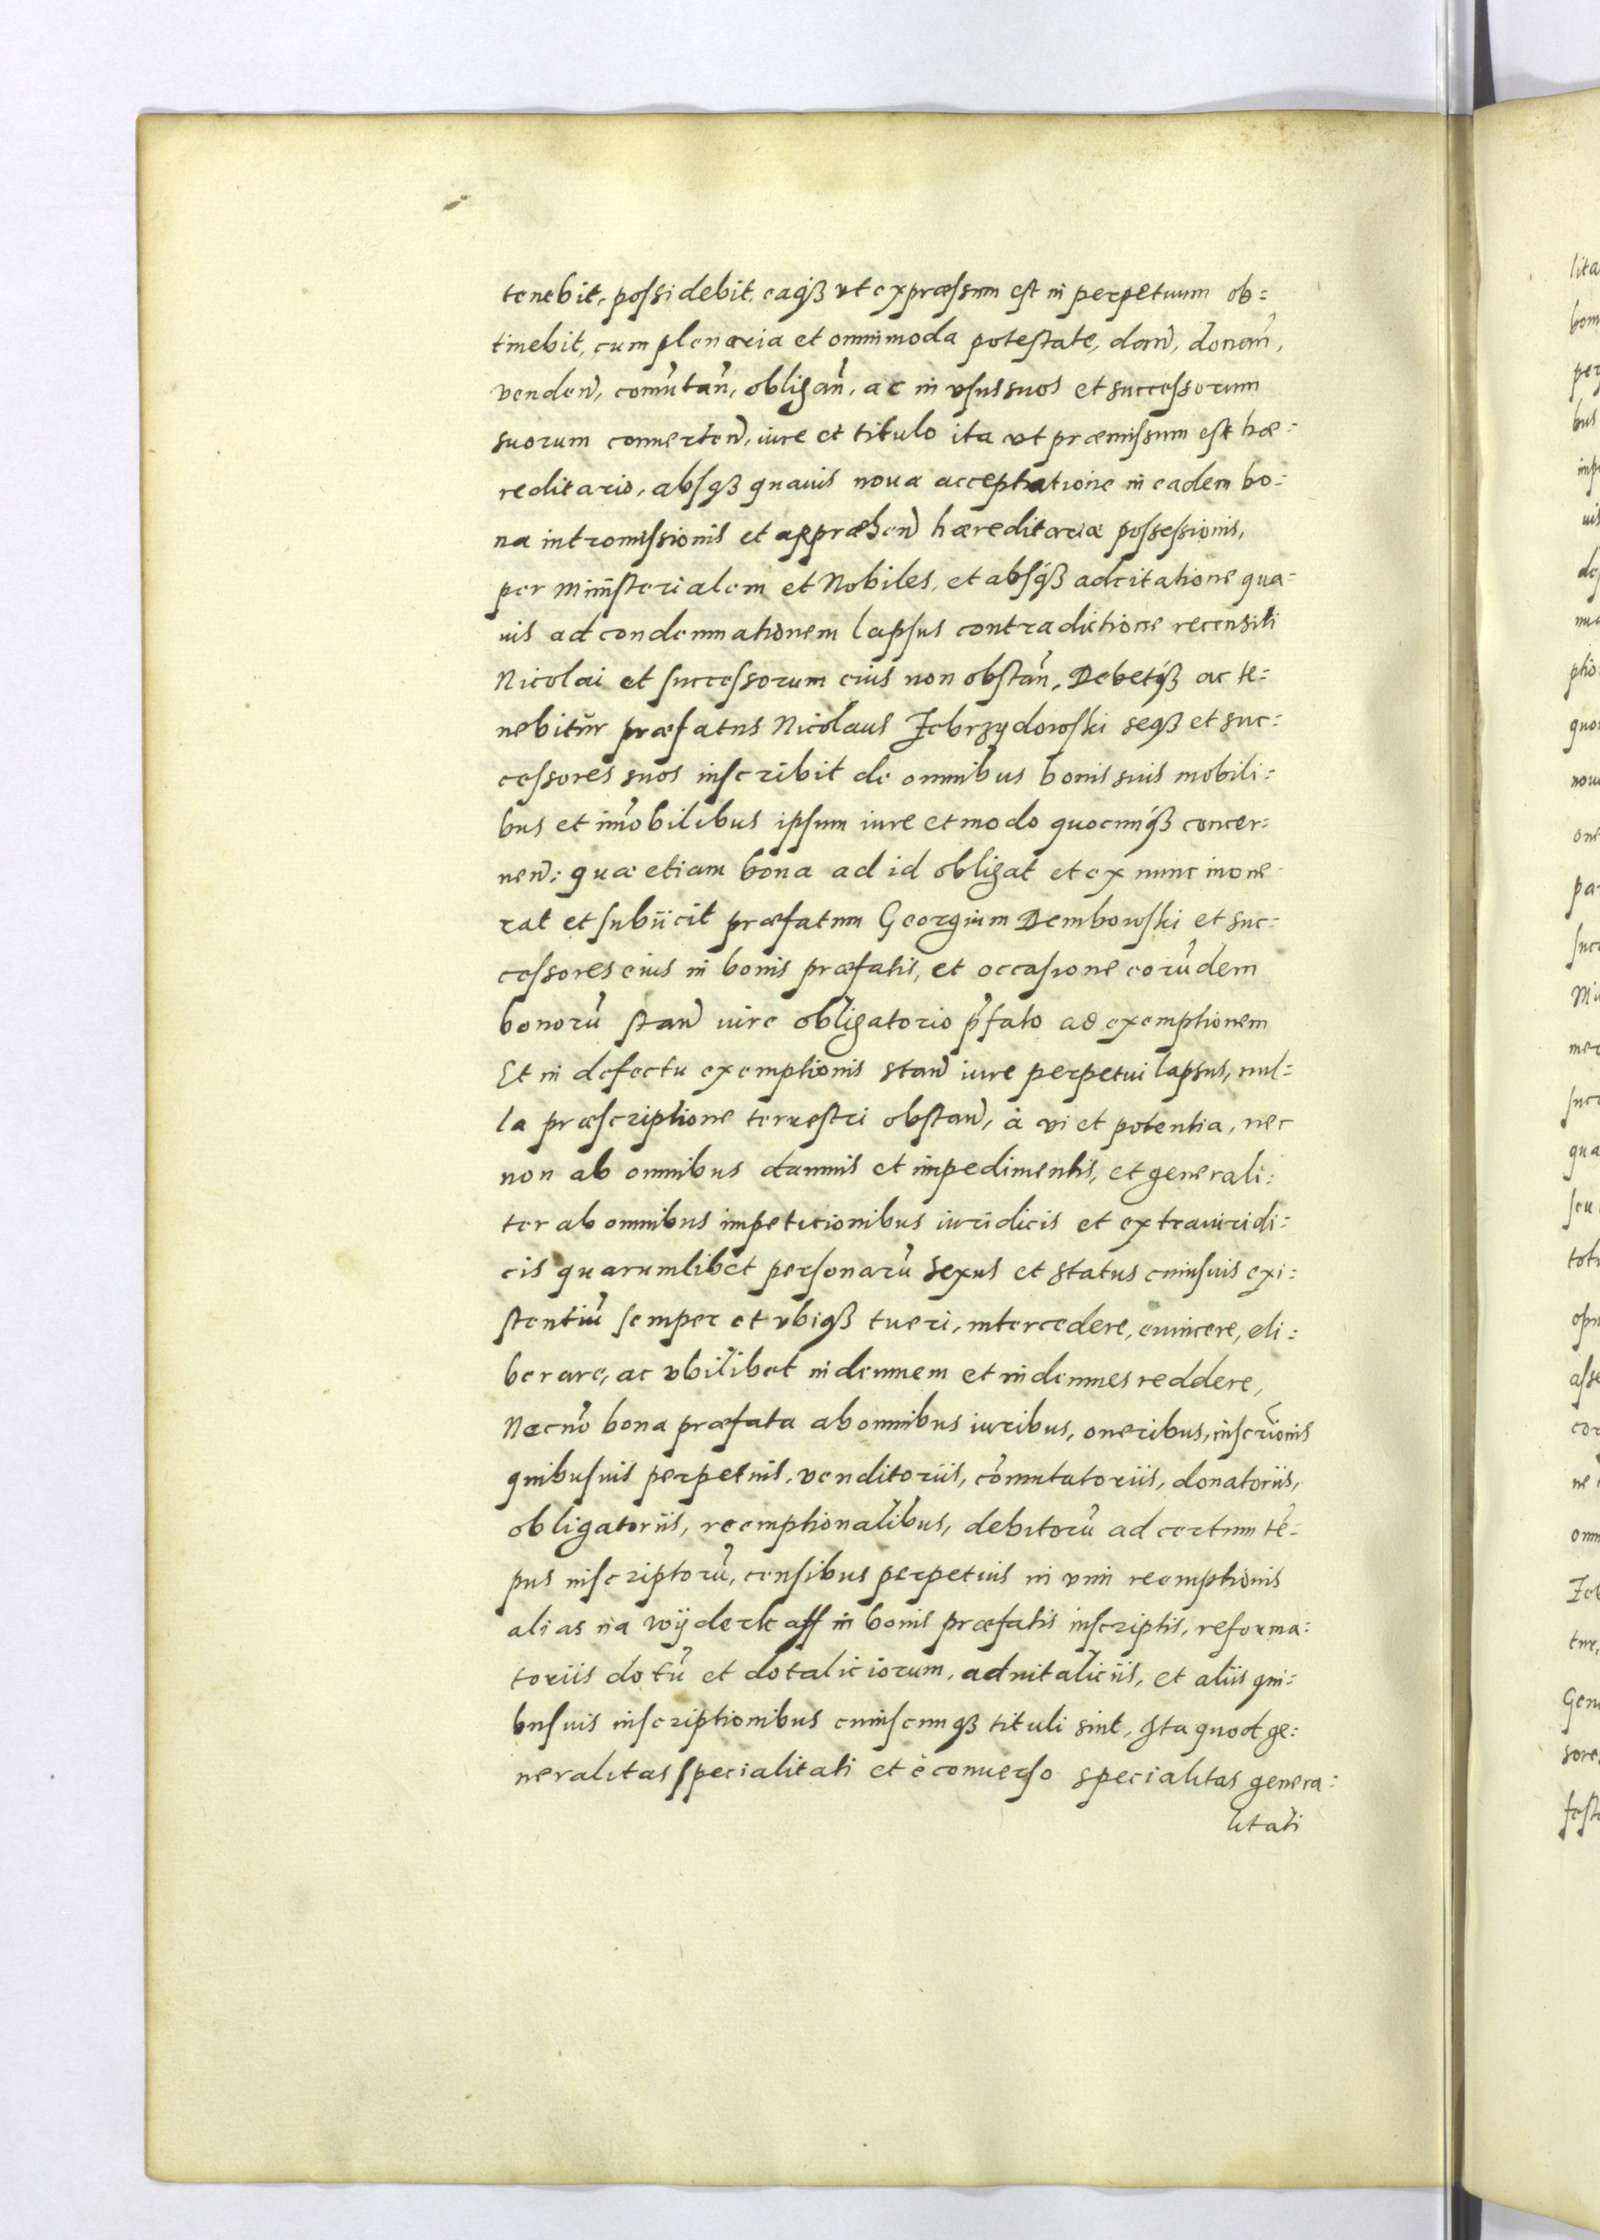 tenebit, possidebit, eaq́ꝫ vt expræssum est in perpetuum ob=
tinebit, cum plenaria et omnimoda potestate, dan̄, donan̄,
venden̄, com̄utan̄, obligan̄, ac in vsus suos et successorum
suorum conuerten̄, iure et titulo ita vt præmissum est hæ=
reditario, absqꝫ quauis noua acceptatione in eadem bo=
na intromissionis et appræhen̄ hæreditariæ possessionis,
per Ministerialem et Nobiles, et absq́ꝫ adcitatione qua=
uis ad condemnationem lapsus contradictione recensiti
Nicolai et successorum eius non obstan̄, Debetq́ꝫ ac te=
nebitur præfatus Nicolaus Zebrzydowski seqꝫ et suc=
cessores suos inscribit de omnibus bonis suis mobili=
bus et im̄obilibus ipsum iure et modo quocunq́ꝫ concer=
nen̄: quæ etiam bona ad id obligat et ex nunc inone
rat et subiicit præfatum Georgium Dembowski et suc=
cessores eius in bonis præfatis, et occasione eorūdem
bonorū stan̄ iure obligatorio p̄fato ad exemptionem
Et in defectu exemptionis stan̄ iure perpetui lapsus, nul=
la præscriptione terrestri obstan̄, à vi et potentia, nec
non ab omnibus damnis et impedimentis, et generali=
ter ab omnibus impeticionibus iuridicis et extraiuridi=
cis quarumlibet personarū sexus et status cuiusuis exi=
stentiū semper et vbiqꝫ tueri, intercedere, euincere, eli=
berare, ac vbilibet indemnem et indemnes reddere,
Necnō bona præfata ab omnibus iuribus, oneribus, inscrīonis
quibusuis perpetuis, venditoriis, cōmutatoriis, donatoriis,
obligatoriis, reemptionalibus, debitorū ad certum tē=
pus inscriptorū, censibus perpetuis in vim reemptionis
alias na wÿderkaff in bonis præfatis inscriptis, reforma=
toriis dotū et dotaliciorum, aduitaliciis, et aliis qui=
busuis inscriptionibus cuiuscunqꝫ tituli sint, Ita quod ge=
neralitas specialitati et è conuerso specialitas genera=
litati